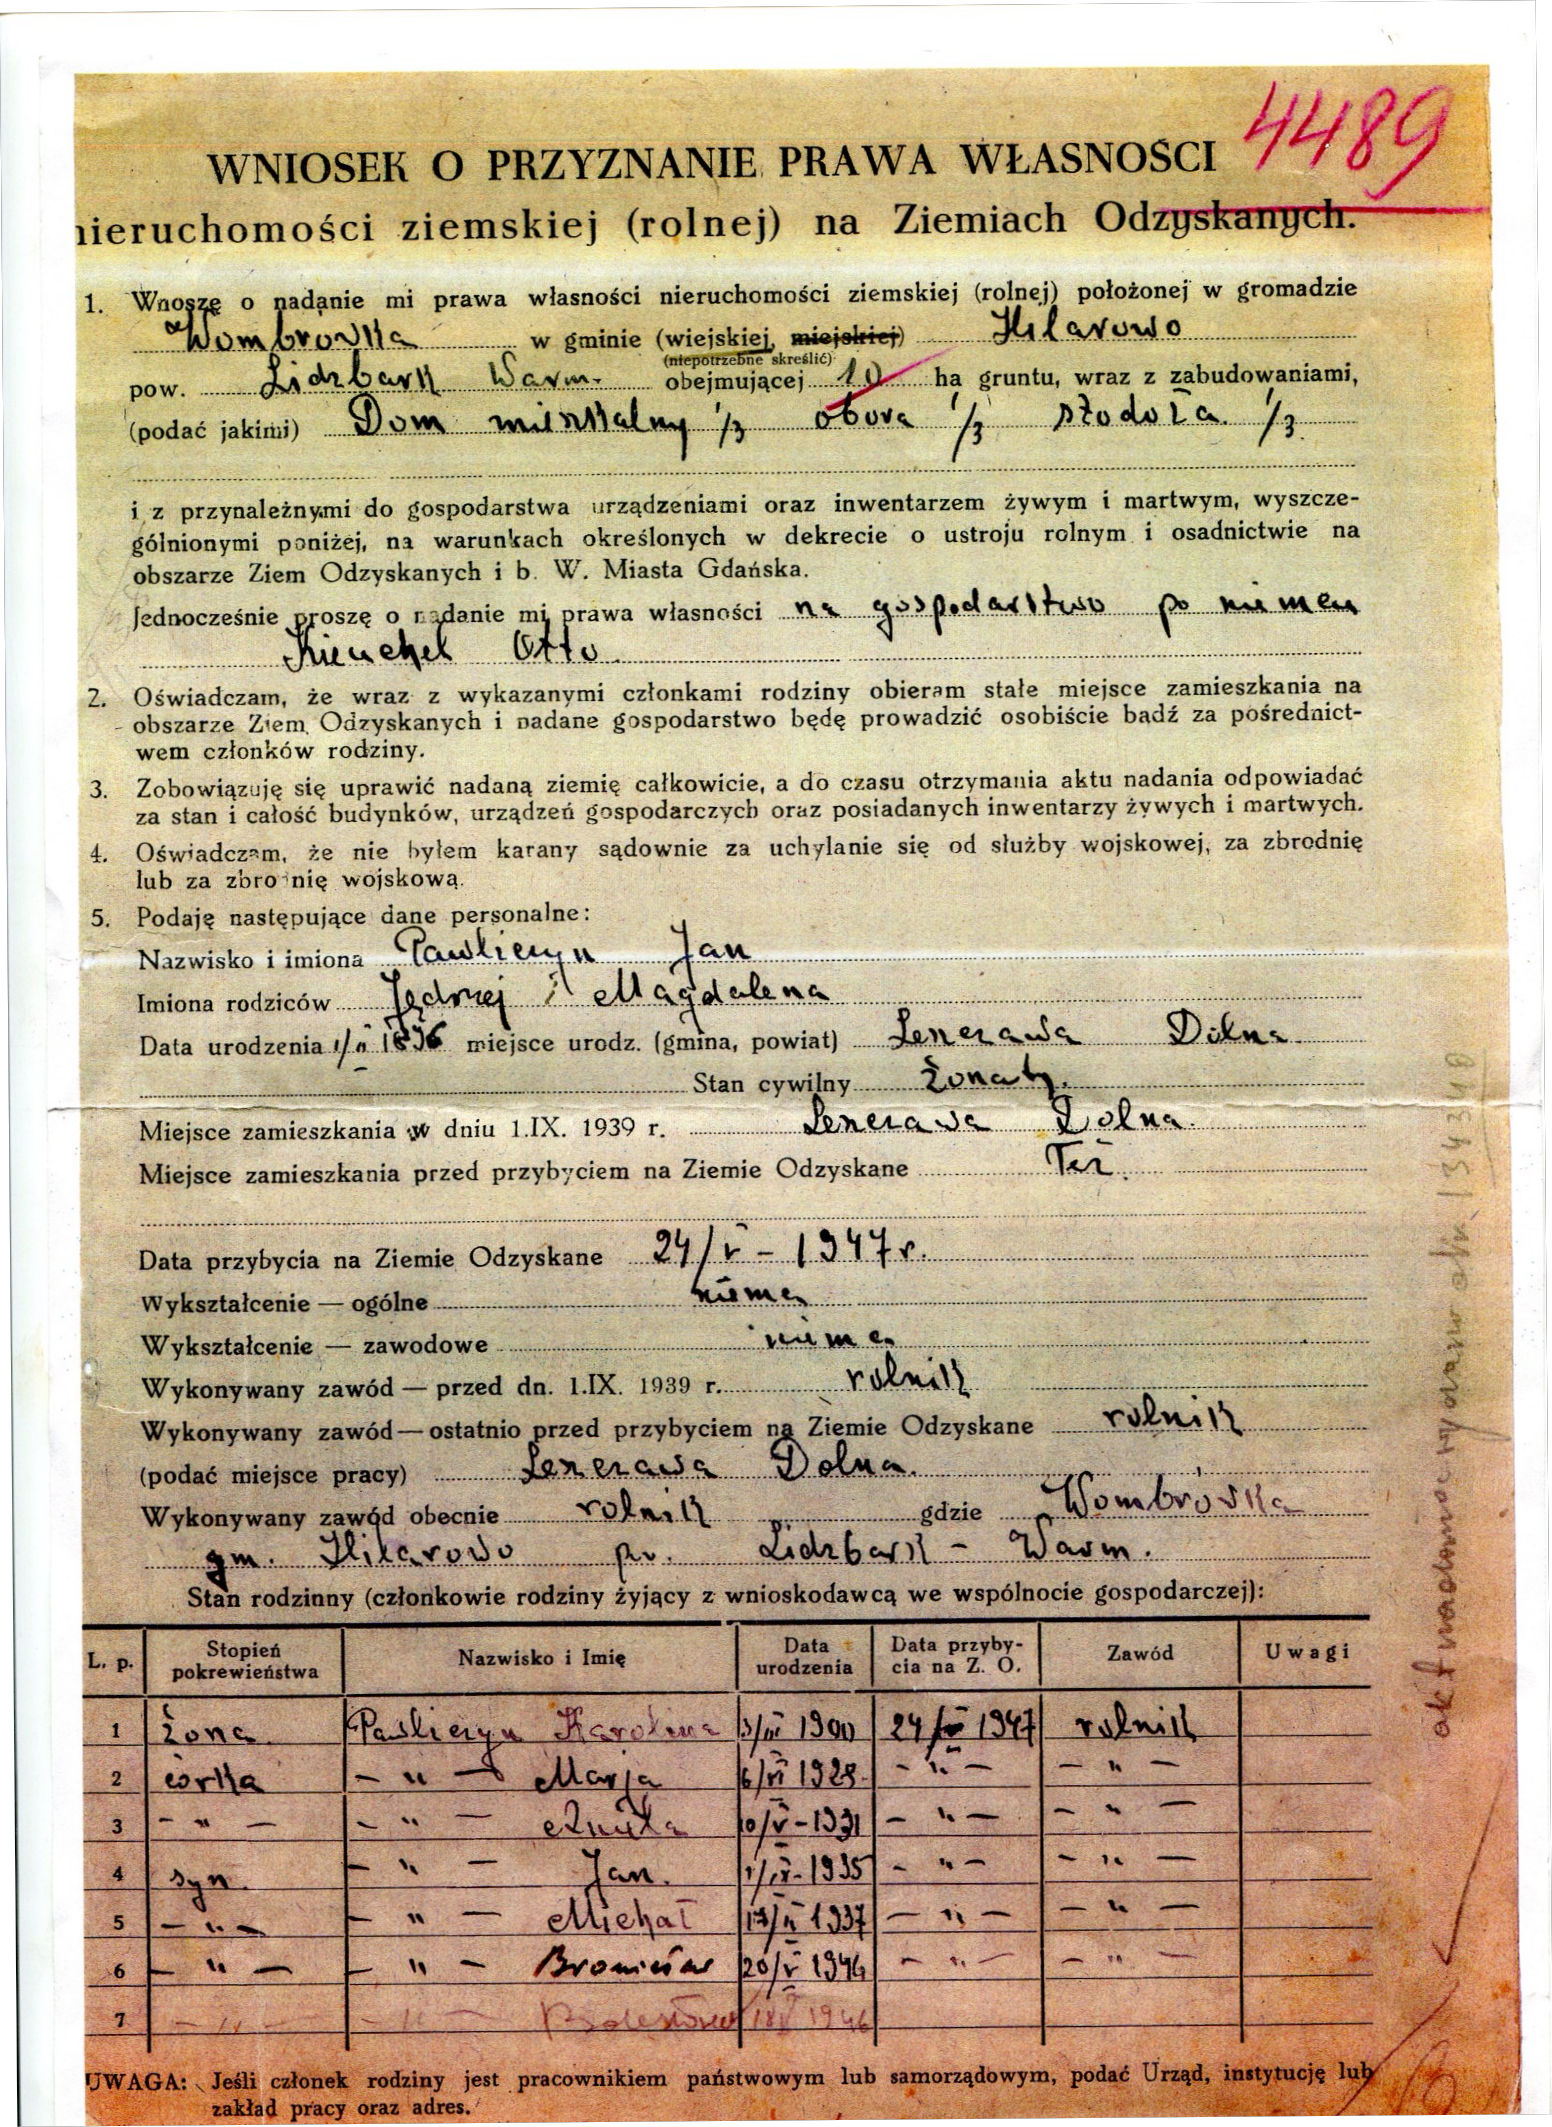 4489
WNIOSEK O PRZYZNANIE PRAWA WŁASNOŚCI
nieruchomości ziemskiej (rolnej) na Ziemiach Odzyskanych.
1. Wnoszę o nadanie mi prawa własności nieruchomości ziemskiej (rolnej) położonej w gromadzie
Wombrovka w gminie (wiejskiej, miejskiej) Hilarowo
(niepotrzebne skreślić)
pow. Lidzbark Warm. obejmującej 10 ha gruntu, wraz z zabudowaniami,
(podać jakimi) Dom mieszkalny 1/3 obora 1/3 stodoła 1/3
i z przynależnymi do gospodarstwa urządzeniami oraz inwentarzem żywym i martwym, wyszcze-
gólnionymi poniżej, na warunkach określonych w dekrecie o ustroju rolnym i osadnictwie na
obszarze Ziem Odzyskanych i b. W. Miasta Gdańska.
Jednocześnie proszę o nadanie mi prawa własności na gospodarstwo po niemcu
Otto
2. Oświadczam, że wraz z wykazanymi członkami rodziny obieram stałe miejsce zamieszkania na
obszarze Ziem Odzyskanych i nadane gospodarstwo będę prowadzić osobiście bądź za pośrednict-
wem członków rodziny.
3. Zobowiązuję się uprawić nadaną ziemię całkowicie, a do czasu otrzymania aktu nadania odpowiadać
za stan i całość budynków, urządzeń gospodarczych oraz posiadanych inwentarzy żywych i martwych.
4. Oświadczam, że nie byłem karany sądownie za uchylanie się od służby wojskowej, za zbrodnię
lub za zbrodnię wojskową.
5. Podaję następujące dane personalne:
Nazwisko i imiona Pawliczyn Jan
Imiona rodziców Jędrzej i Magdalena
Data urodzenia 1/II 1896 miejsce urodz. (gmina, powiat) Leszczawa Dolna
Stan cywilny żonaty.
Miejsce zamieszkania w dniu 1.IX. 1939 r. Leszczawa Dolna.
Miejsce zamieszkania przed przybyciem na Ziemie Odzyskane Też.
Data przybycia na Ziemie Odzyskane 24/V – 1947 r.
Wykształcenie — ogólne niema
Wykształcenie — zawodowe niema
Wykonywany zawód — przed dn. 1.IX. 1939 r. rolnik
Wykonywany zawód — ostatnio przed przybyciem na Ziemie Odzyskane rolnik
(podać miejsce pracy) Leszczawa Dolna.
Wykonywany zawód obecnie rolnik gdzie Wombrówka
gm. Hilarowo pow. Lidzbark – Warm.
Stan rodzinny (członkowie rodziny żyjący z wnioskodawcą we wspólnocie gospodarczej):
L. p. Stopień pokrewieństwa Nazwisko i Imię Data urodzenia Data przyby- cia na Z. O. Zawód Uwagi
1 żona Pawliczyn Karolina 3/III 1900 24/V 1947 rolnik
2 córka – " – Marja 6/VI 1928 – " – – " –
3 – " – – " – Aniela 10/V – 1931 – " – – " –
4 syn. – " – Jan. 1/IX – 1935 – " – – " –
5 – " – – " – Michał 17/II 1937 – " – – " –
6 – " – – " – Bronisław 20/V 1944 – " – – " –
7 – " – – " – Bolesław 18/V 1946
UWAGA: Jeśli członek rodziny jest pracownikiem państwowym lub samorządowym, podać Urząd, instytucję lub
zakład pracy oraz adres.